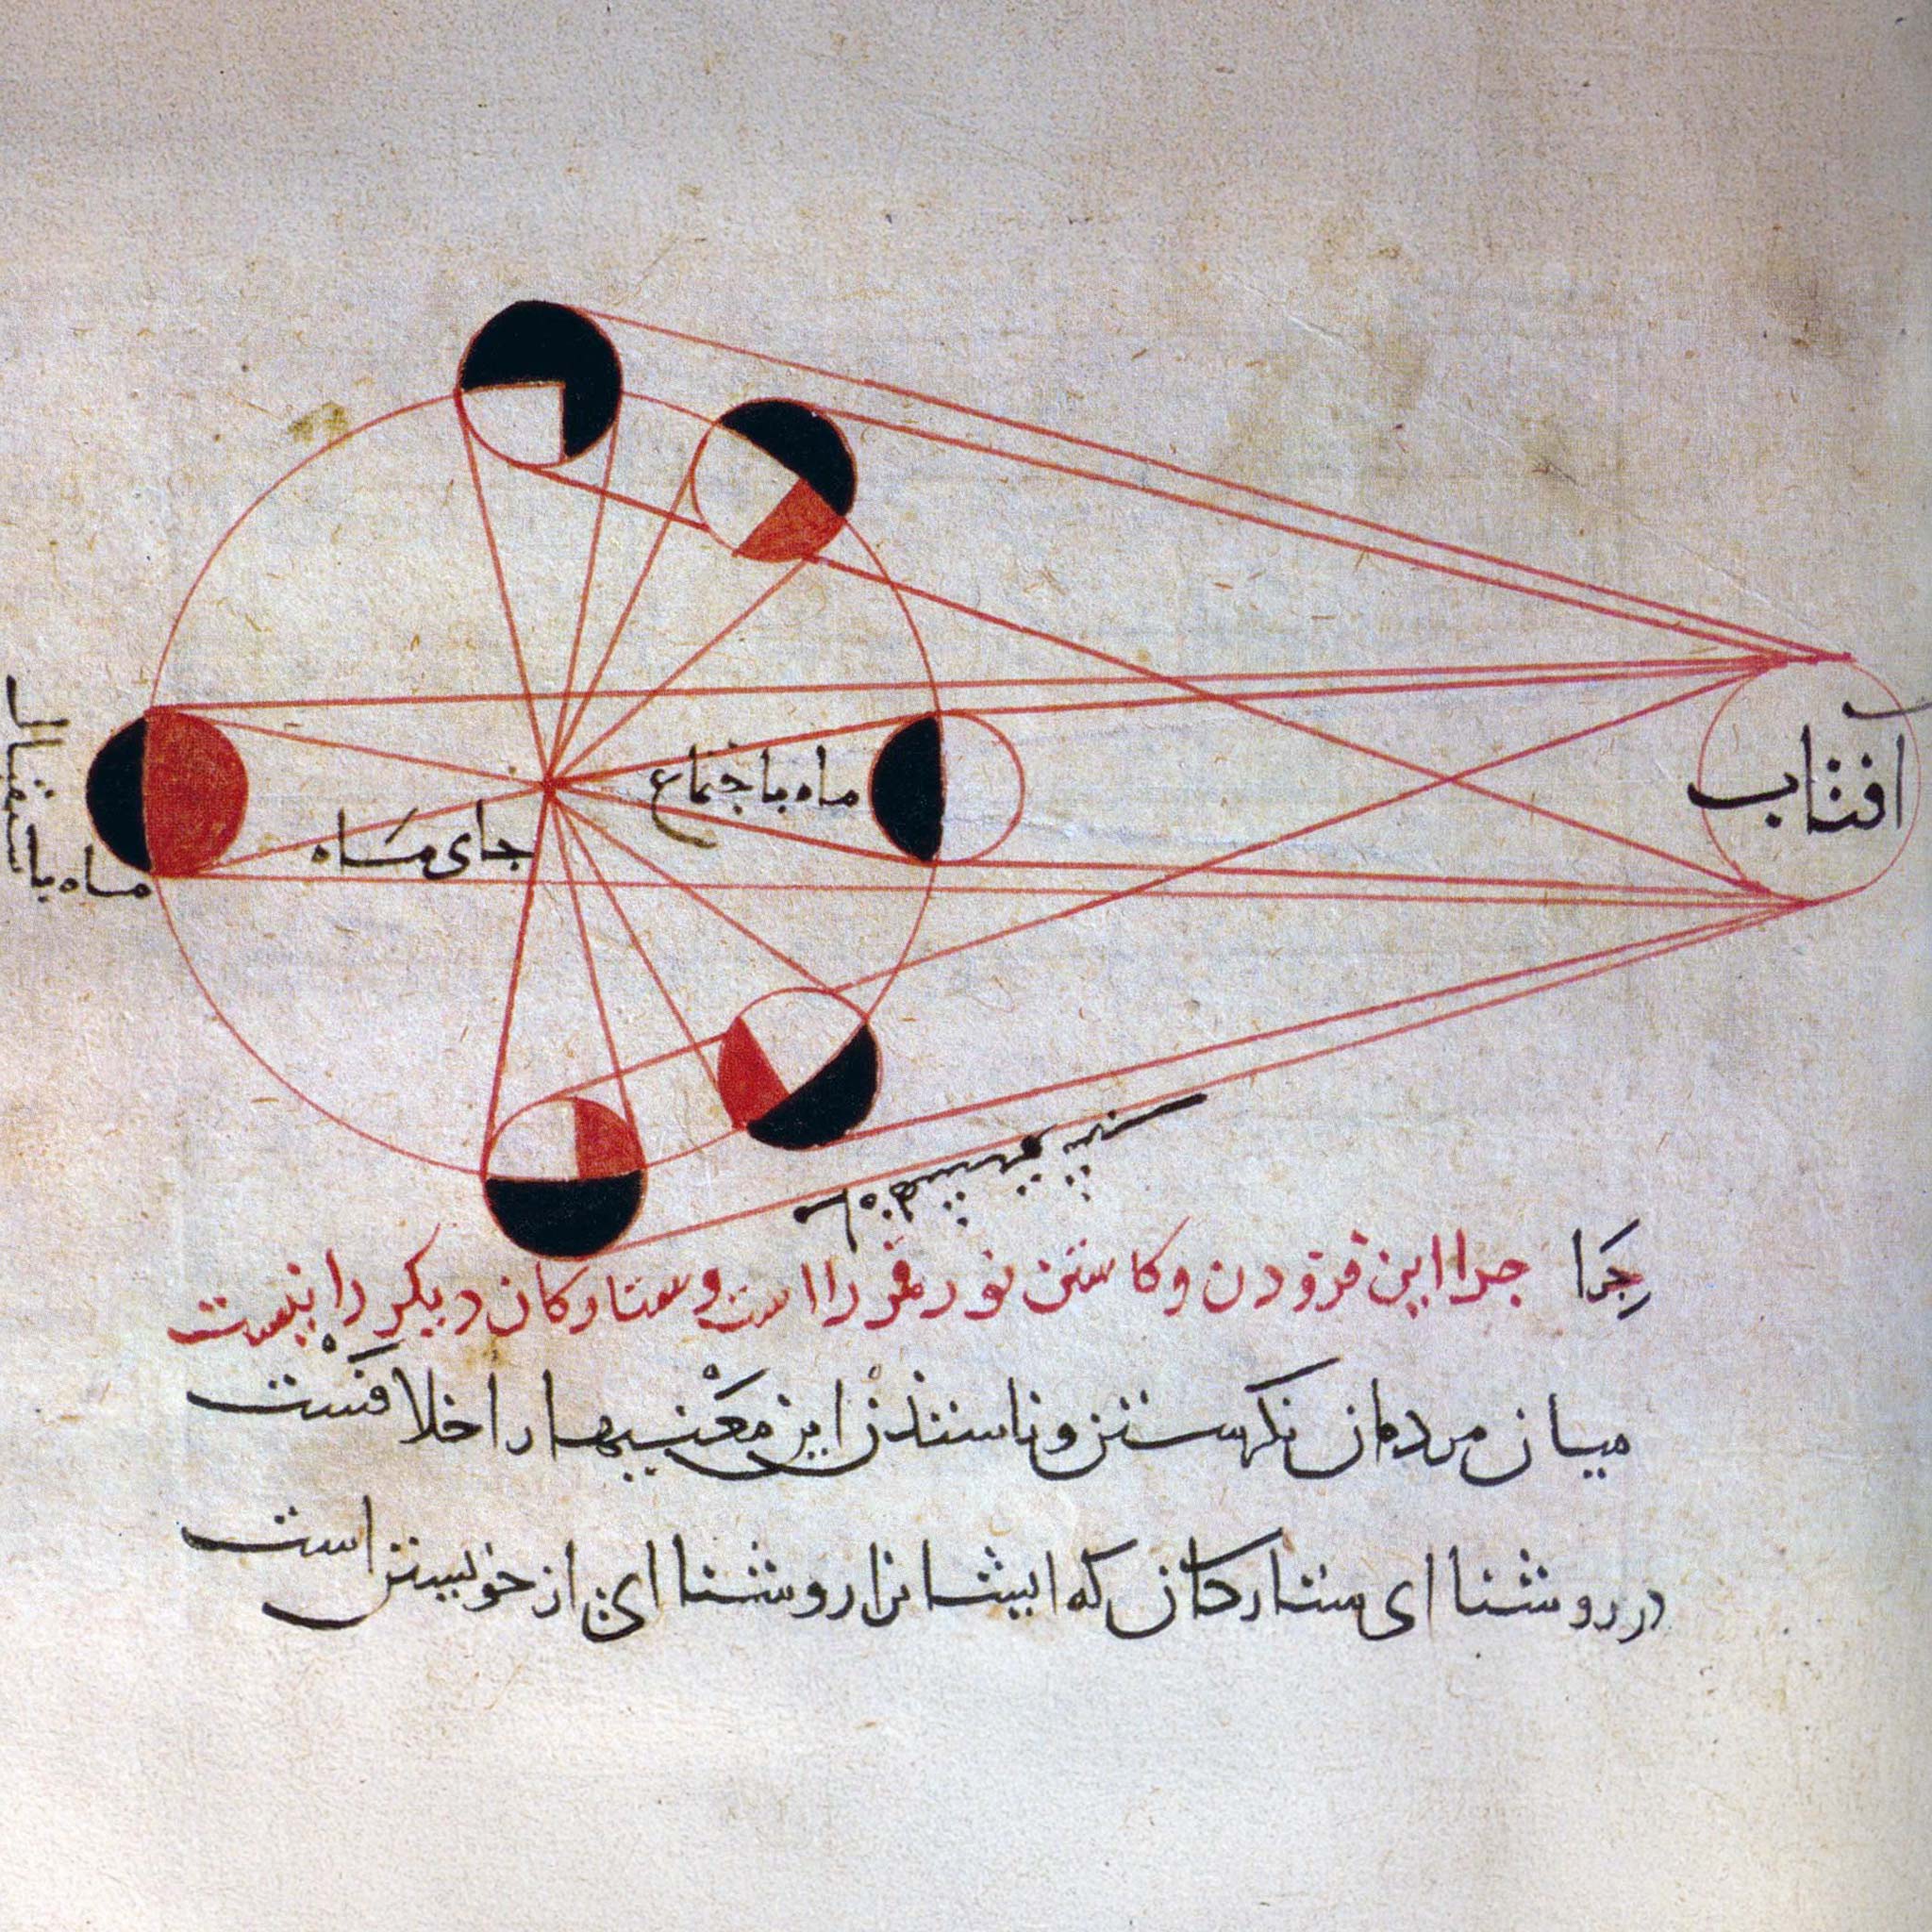 افتاب
ماه باجتماع
جای مَاه
ماه باستقبال
چَرا چرا این فزودن و کاستن نور قمر را است و ستارکان دیکر را نیست
میان مردمان نکرستن و ناسنندن این مَعْنیها را خلافَسْت
در روشنا ای ستارکان که ایشانرا روشنا ای از خویستن است